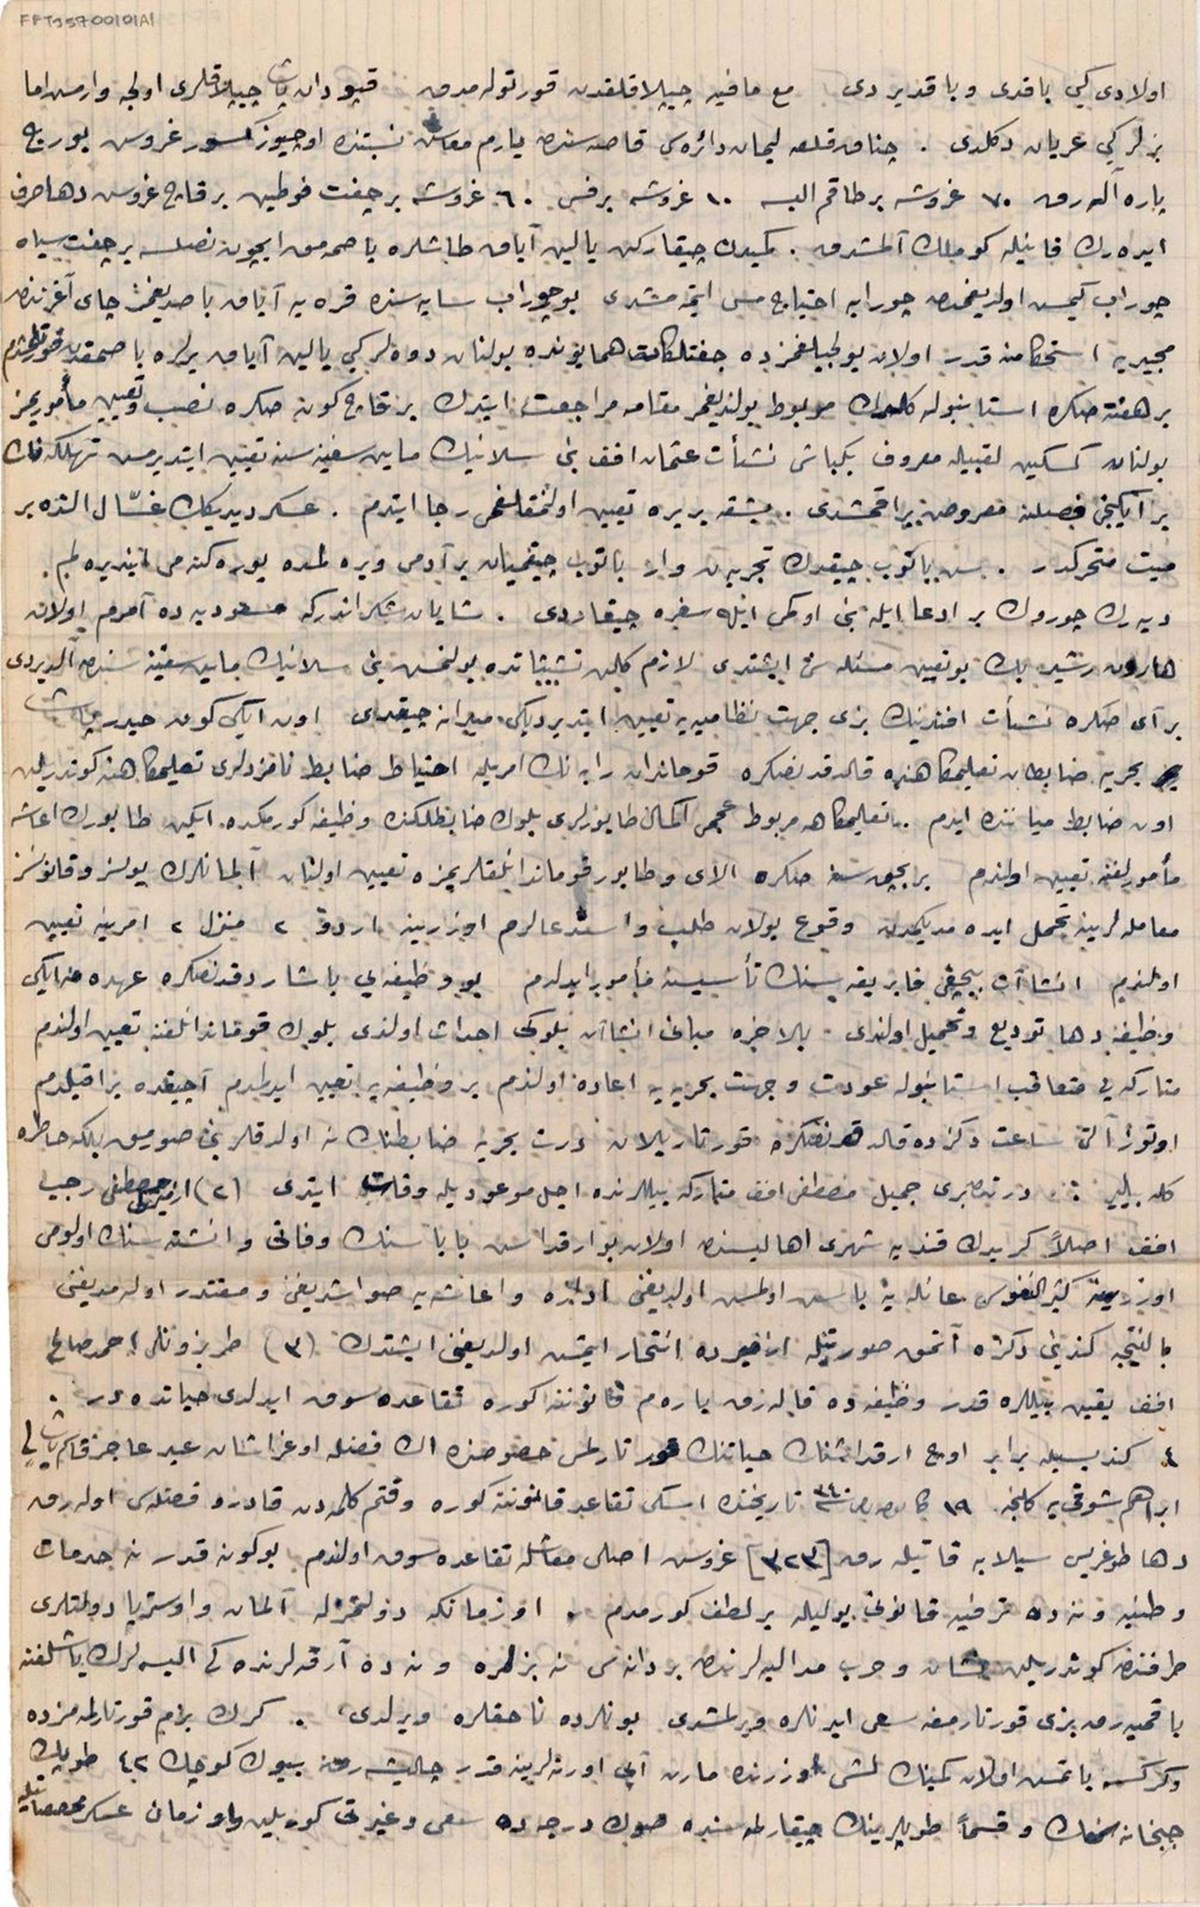 FFT355700101A1
اولادی كبی باقدی و باقدیردی مع مافیه چیپلاقلقدن قورتوله مدق قپودان پاشا چیپلاقلری اولجه وارمش اما
بزلر كبی عریان دكلدی . چناق قلعه لیمان دائره سی قاصه سندن یارم معاش نسبتنده اوچیوز كسور غروش بورج
پاره آله رق ٧٠ غروشه بر طاقم البسه ١٠ غروشه بر فس ٦٠ غروشه بر چفت فوطین بر قاچ غروش دها صرف
ایده رك فانیله كوملك آلمشدق . كمیدن چیقاركن یالین آیاق طاشلره باصمامق ایچون نصلسه بر چفت سیاه
چوراب كیمش اولدیغمدن چورابه احتیاج مس ایتمه مشدی بو چوراب سایه سنده قره یه آیاق باصدیغمز چای آغزندن
مجیدیه استحكامنه قدر اولان یولجیلغمزده جفتلكات همایونده بولنان دوه لر كبی یالین آیاق یرلره باصمقدن قورتولمشدم
بر هفته صكره استانبوله كلدك مربوط بولندیغمز مقامه مراجعت ایتدك بر قاچ كون صكره نصب و تعیین مأموریمز
بولنان كسكین لقبیله معروف بیكباشی نشأت عثمان افندی بنی سلانیك ماین سفینه سنه تعیین ایتدیرمش تهلكه نك
بر ایكنجی فصلنه معروض بیراقمشدی . بشقه بر یره تعیین اولنمقلغمی رجا ایتدم . عسكر دیدیكك غسّال النده بر
میت متحركدر . سن باتوب چیقدك تجربه ك وار باتوب چیقمیان بر آدمی ویره لمده یوره كنه می ایندیره لم .
دیه رك چوروك بر ادعا ایله بنی اوكی ایله سفره چیقاردی . شایان شكراندركه مسعودیه ده آمرم اولان
هارون رشید بك بو تعیین مسئله سنی ایشتدی لازم كلن تشبثاتده بولنمش بنی سلانیك ماین سفینه سندن آلدیردی
بر آی صكره نشأت افندینك بزی جهت نظامیه یه تعیین ایتدیردیكی میدانه چیقدی اون ایكی كون حیدر پاشا
بحریه ضابطان تعلیمكاهنده قالدقدنصكره قوماندان رابه نك امریله احتیاط ضابط نامزدلری تعلیمكاهنه كوندریلن
اون ضابط میاننده ایدم . تعلیمكاهه مربوط عجمی اكمال طابورلری بلوك ضابطلكنده وظیفه كورمكده ایكن طابورك اعاشه
مأمورلغنه تعیین اولندم بر بچق سنه صكره الای و طابور قوماندانلقلریمزه تعیین اولنان آلمانلرك یولسز و قانونسز
معامله لرینه تحمل ایده مدیكمدن وقوع بولان طلب و استدعالرم اوزرینه اردو ٢ منزل ٢ امرینه تعیین
اولندم انشاآت بیچقی فابریقه سنك تأسیسنه مأمور ایدلدم بو وظیفه یی باشاردقدنصكره عهده مه ایكی
وظیفه دها تودیع و تحمیل اولندی . بالاخره مبانی انشاآت بلوكی احداث اولندی بلوك قوماندانلغنه تعیین اولندم
متاركه یی متعاقب استانبوله عودت و جهت بحریه یه اعاده اولندم بر وظیفه یه تعیین ایدلمدم آچیقده بیراقیلدم
اوتوز آلتی ساعت دكزده قالدقدنصكره قورتاریلان درت بحریه ضابطنك نه اولدقلرینی صورمق بلكه خاطره
كله بیلیر : درت دنبری جمیل مصطفی افندی متاركه ییللرنده اجل موعودیله وفات ایتدی (٢) ازمیرلی مصطفی رجب
افندی اصلاً كریدك قندیه شهری اهالیسندن اولان بو ارقداش باباسنك وفاتی و انشته سنك اولومی
اوزرینه كثیر النفوس عائله یه باش اولمش اولدیغنی اداره و اعاشه یه صواشدیغنی و مقتدر اوله مدیغنی
بالنتیجه كندینی دكزه آتمق صورتیله ازمیرده انتحار ایتمش اولدیغنی ایشتدك (٣) طربزونلی احمد صالح
افندی یقین ییللره قدر وظیفه ده قاله رق یاره م قانوننه كوره تقاعده سوق ایدلدی حیاتده در .
٤ كندیسیله برابر اوچ ارقداشنك حیاتنك قورتارلمسی خصوصنده اك فضله اوغراشان عبد عاجز قاسم پاشالی
ابراهیم شوقی یه كلنجه ١٩ كانون ٣٤٠ تاریخنده اسكی تقاعد قانوننه كوره وقتم كلمه دن قادرو فضله سی اوله رق
دها طوغریسی سیلابه قاتیله رق [٣٢٣] غروش اصلی معاشله تقاعده سوق اولندم بو كونه قدر نه خدمات
وطنیه و نه ده ترفیه قانونی یولیله بر لطف كورمدم . او زمانكه دولتمزله آلمان و اوستریا دولتلری
طرفندن كوندریلن نشان و حرب مدالیه لرندن بر دانه سی نه بزلره و نه ده آرقه لرنده كی البسه لرك یاشلغنه
باقمیه رق بزی قورتارمغه سعی ایدنلره ویرلمشدی بونلرده ناحقلره ویرلدی . كرك بزم قورتارلمه مزده
و كركسه یاتمش اولان كمینك لشی اوزرنده مارت آیی اورته لرینه قدر چالیشه رق بیوك كوچك ٤٢ طوپك
جبخانه سنك و قسماً طوپلرینك چیقارلمه سنده صوك درجه ده سعی و غیرتی كوریلن و او زمان عسكر مخصصاتیله